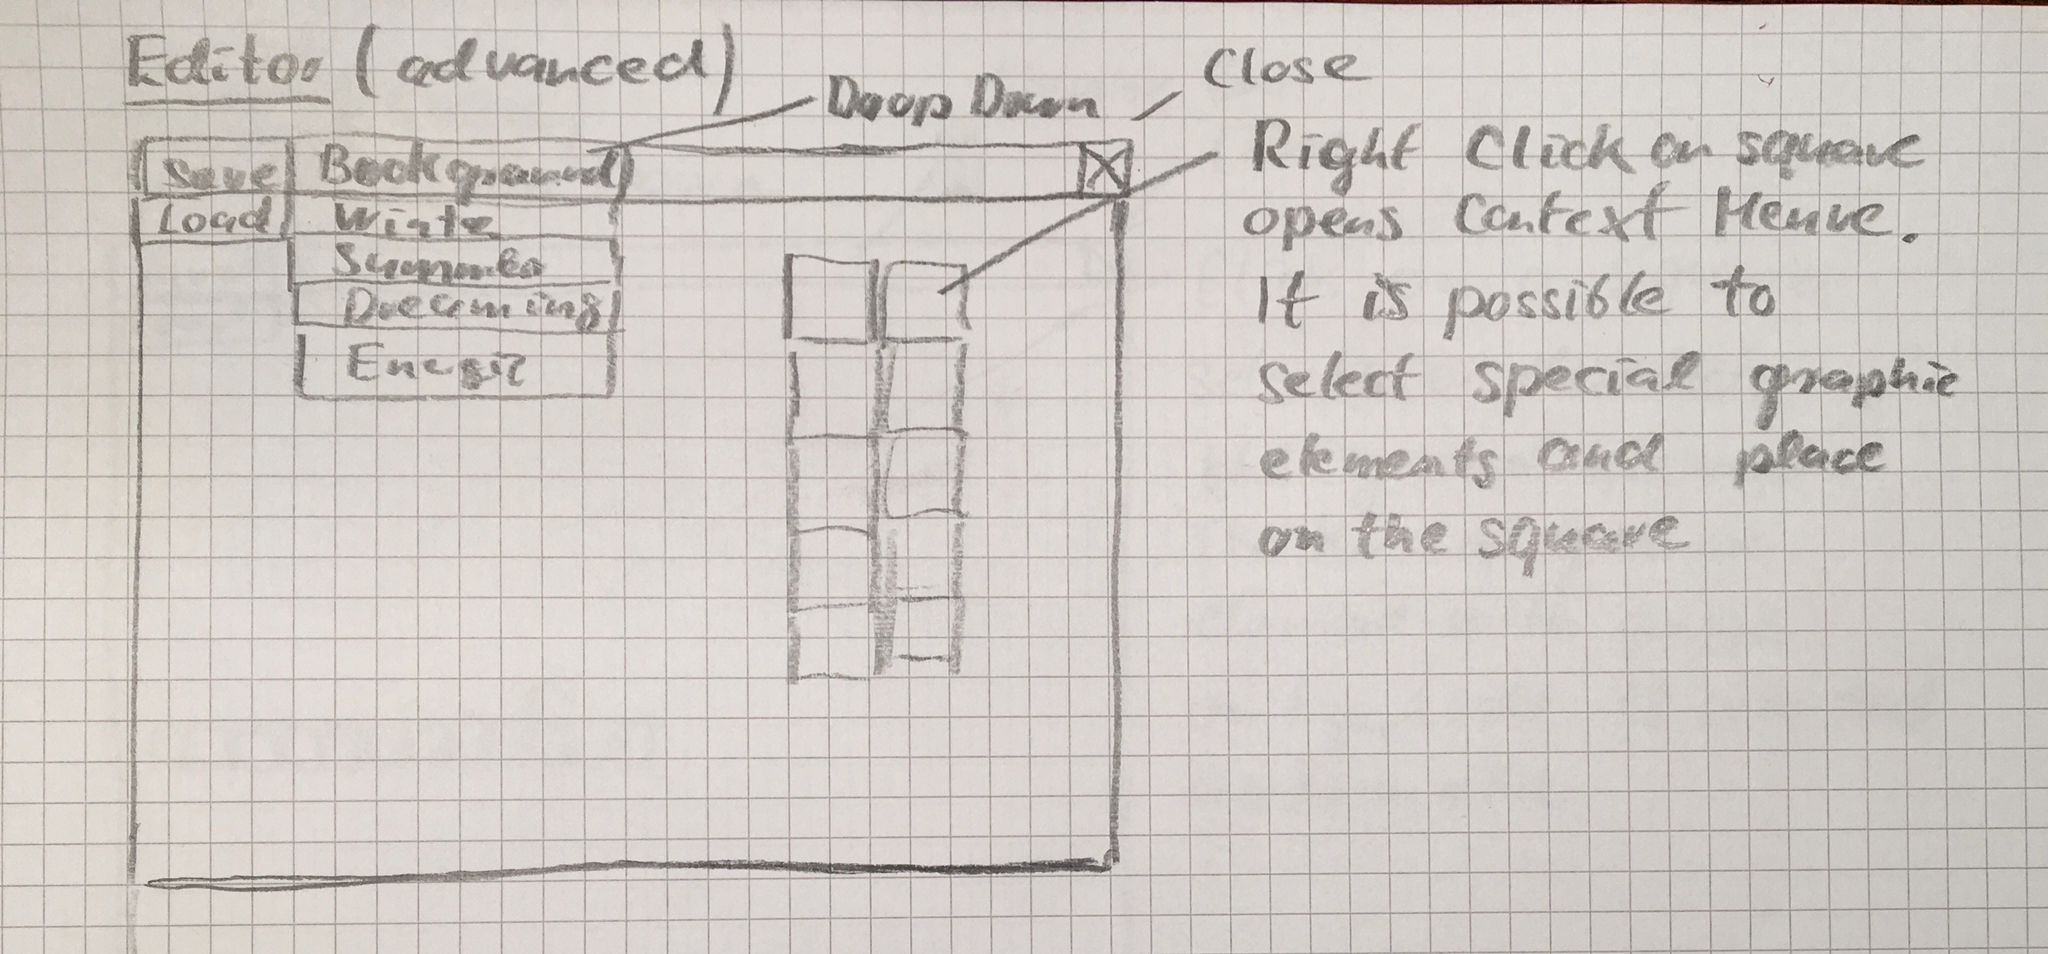 Editor (advanced)
Close
Droop Down
Save Background
Load Winte
Summer
Dreaming
Right Click on square
opens Context Menue.
It is possible to
select special graphic
elements and place
on the square